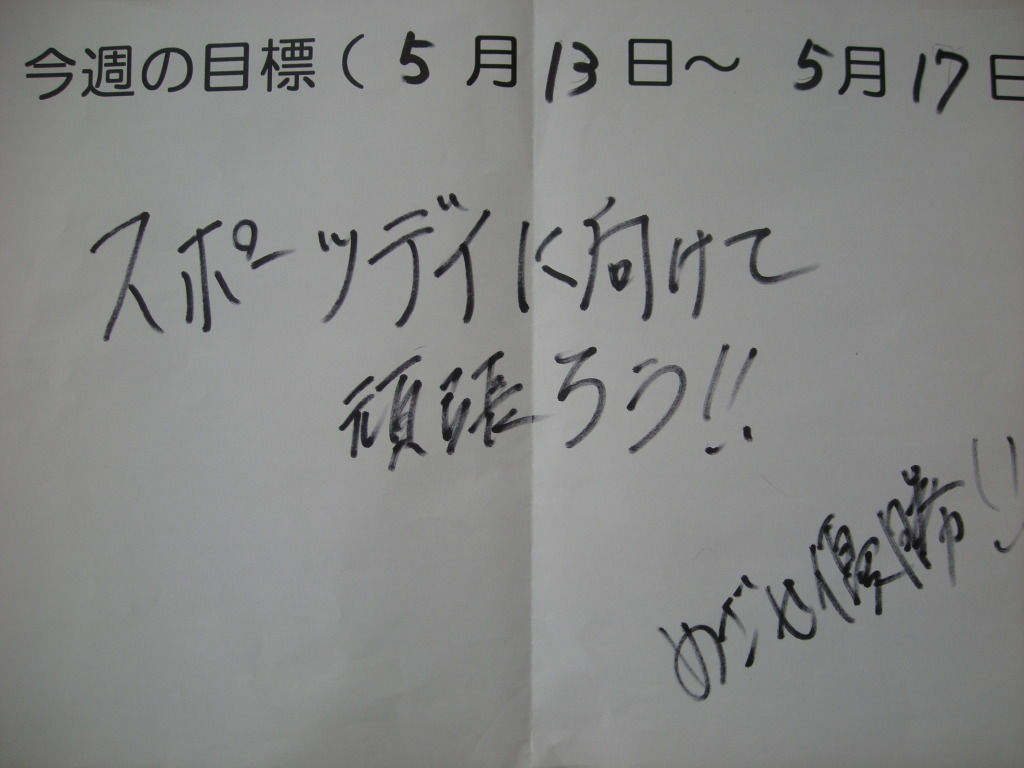 今週の目標(5月13日〜 5月17日
スポーツデイに向けて
頑張ろう!!
めざせ優勝!!